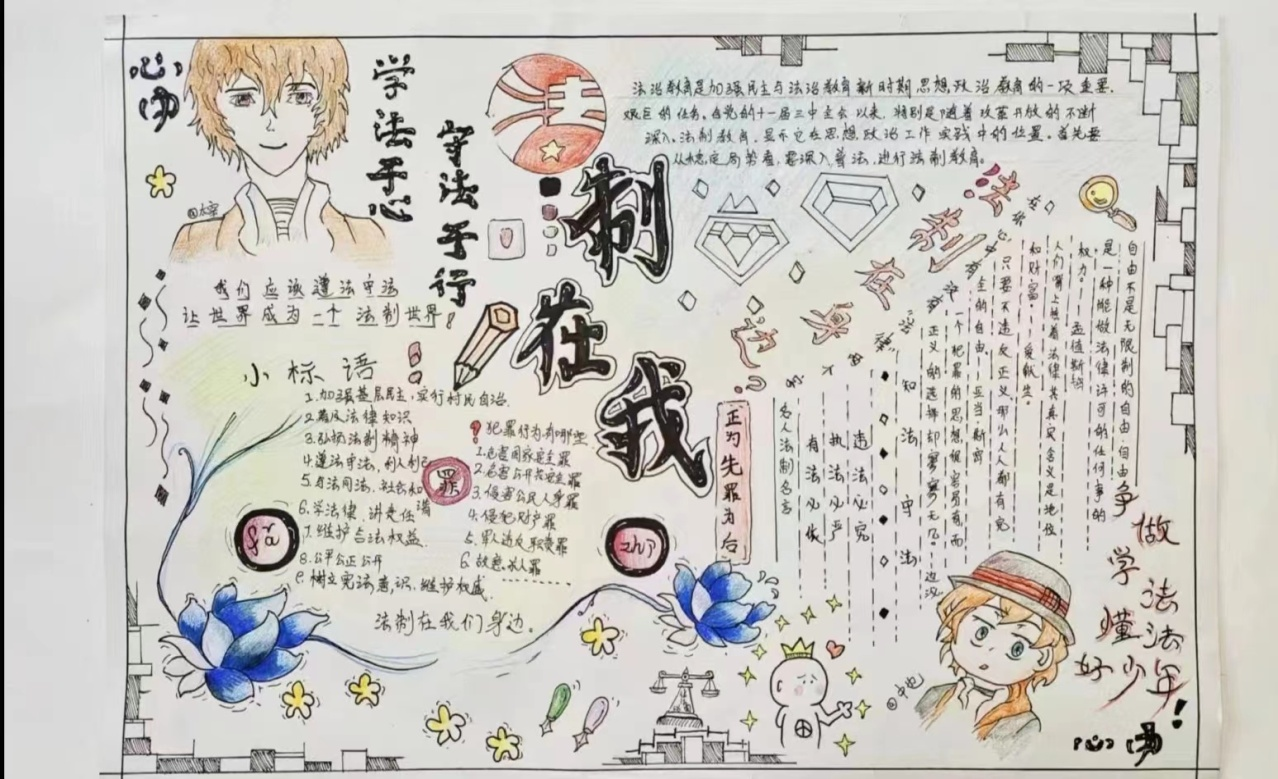 心
学法于心
守法于行
@太宰
法
制
在
我
法治教育是加强民主与法治教育新时期思想政治教育的一项重要
艰巨的任务。在党的十一届三中全会以来,特别是随着改革开放的不断
深入,法制教育,显示它在思想政治工作实践中的位置。首先要
深入普法,进行法制教育。
我们应该遵法守法
让世界成为一个法制世界!
小标语
1.加强基层民主,实行村民自治.
2.普及法律知识
3.弘扬法制精神
4.遵法守法,利人利己
5.
6.学法律 讲责任
7.维护合法权益.
8.公平公正公开
9.树立宪法意识,维护权威.
法制在我们身边。
罪
犯罪行为有哪些
1.危害国家安全罪
2.危害公共安全罪
3.侵害公民人身罪
4.侵犯财产罪
5.军人违反职责罪
6.故意杀人罪
fa
zhi
法制在身边?
自由不是无限制的自由,自由
是一种能做法律许可的任何事的
权力。 孟德斯鸠
人们嘴上挂着法律,其真实含义是地位
和财富。 爱献生
只要不违反正义那么人人都有完
全的自由。 亚当斯密
一个犯罪的思想很容易有,而
正义的选择却寥寥无几。
知法守法
违法必究
执法必严
有法必依
名人法制名言
正为先罪为后
争做
学法
懂法
好少年!
@中也
心